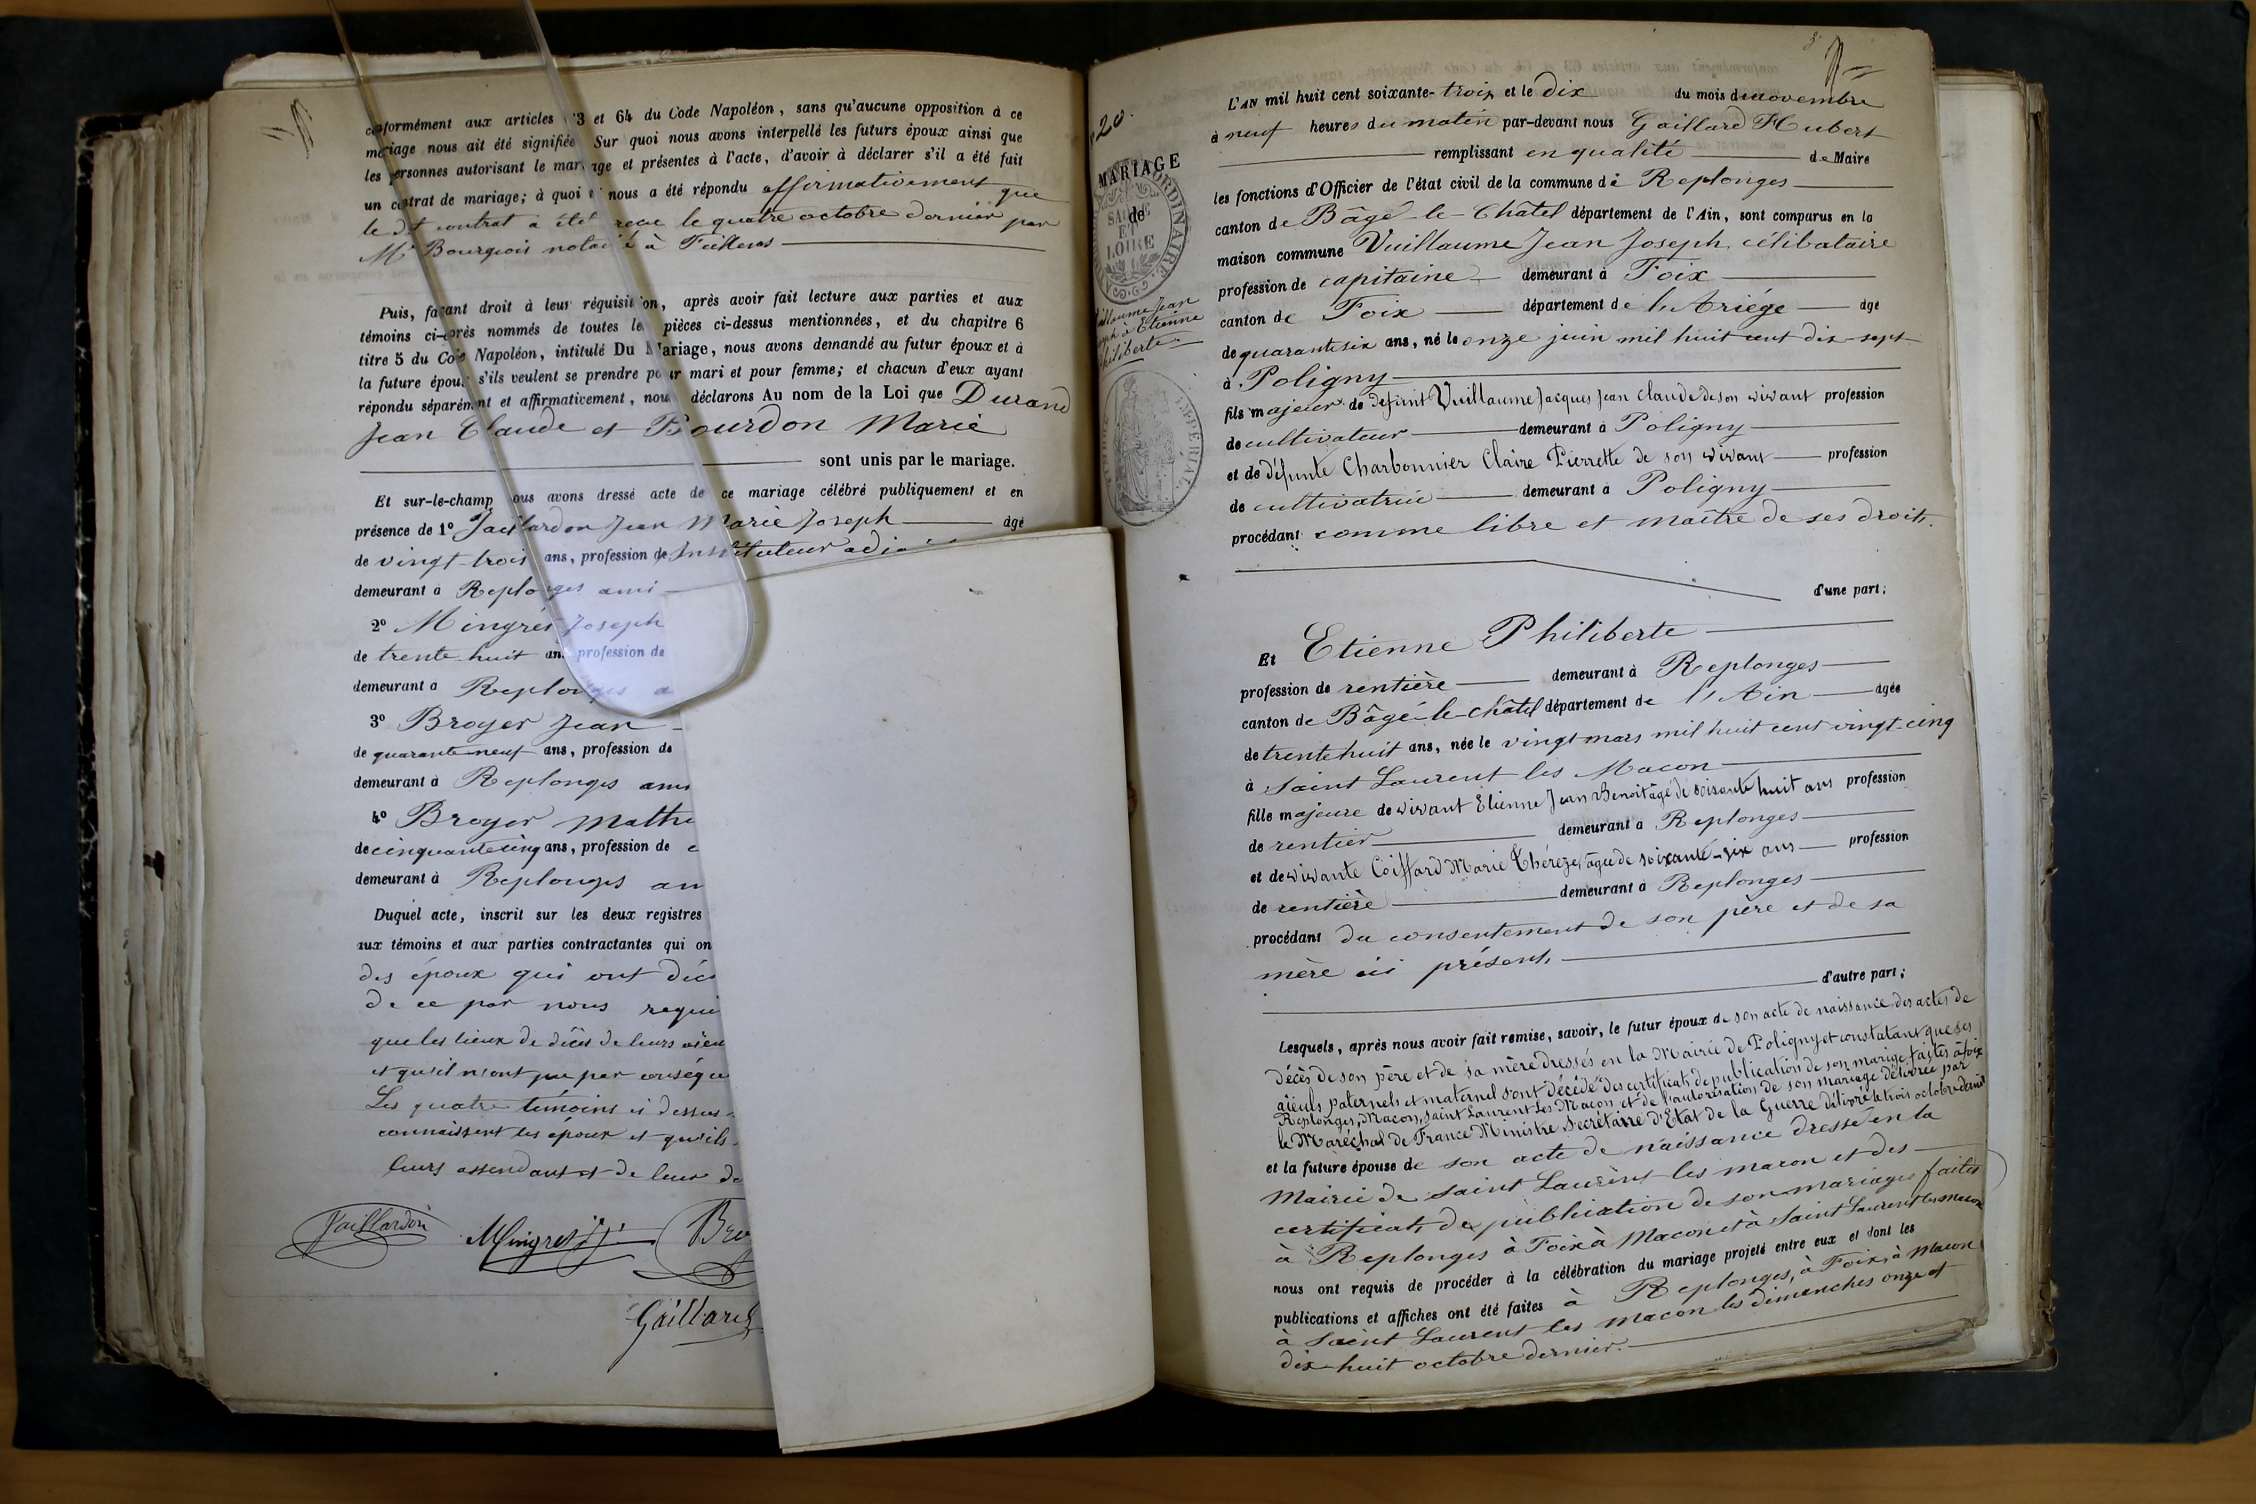 conformément aux articles 63 et 64 du Code Napoléon, sans qu'aucune opposition à ce
mariage nous ait été signifiée Sur quoi nous avons interpellé les futurs époux ainsi que
les personnes autorisant le mariage et présentes à l'acte, d'avoir à déclarer s'il a été fait
un contrat de mariage; à quoi il nous a été répondu affirmativement que
le dit contrat a été reçu le quatre octobre dernier par
Me Bourgeois notaire à
Puis, faisant droit à leur réquisition, après avoir fait lecture aux parties et aux
témoins ci-après nommés de toutes les pièces ci-dessus mentionnées, et du chapitre 6
titre 5 du Code Napoléon, intitulé Du Mariage, nous avons demandé au futur époux et à
la future épouse s'ils veulent se prendre pour mari et pour femme; et chacun d'eux ayant
répondu séparément et affirmativement, nous déclarons Au nom de la Loi que Durand
Jean Claude et Bourdon Marie
sont unis par le mariage.
Et sur-le-champ nous avons dressé acte de ce mariage célébré publiquement et en
présence de 1º Jaillardon Jean Marie Joseph âgé
de vingt-trois ans, profession de Instituteur
demeurant à Replonges ami
2º Mingres Joseph
de trente-huit ans profession de
demeurant à Replonges a
3º Broyer Jean
de quarante-neuf ans, profession de
demeurant à Replonges ami
4º Broyer Mathi
de cinquante cinq ans, profession de c
demeurant à Replonges am
Duquel acte, inscrit sur les deux registres
aux témoins et aux parties contractantes qui on
des époux qui ont déc
de ce par nous requi
que les lieux de décès de leurs aïeu
et qu'il n'ont pu par conséque
Les quatre témoins ci dessus
connaissent les époux et qu'ils
leurs assendant et de leur de
Jaillardon Mingres Bro
Gaillard
20.
MARIAGE
de
SAÔNE
ET
LOIRE
Vuillaume Jean
Joseph à Etienne
Philiberte
IMPÉRIAL
L'AN mil huit cent soixante-trois et le dix du mois de novembre
à neuf heures du matin par-devant nous Gaillard Hubert
remplissant en qualité de Maire
les fonctions d'Officier de l'état civil de la commune de Replonges
canton de Bâgé-le-Châtel département de l'Ain, sont comparus en la
maison commune Vuillaume Jean Joseph, célibataire
profession de capitaine demeurant à Foix
canton de Foix département de l'Ariége âgé
de quarante six ans, né le onze juin mil huit cent dix-sept
à Poligny
fils majeur de défunt Vuillaume Jacques Jean Claude de son vivant profession
de cultivateur demeurant à Poligny
et de défunte Charbonnier Claire Pierrette de son vivant profession
de cultivatrice demeurant à Poligny
procédant comme libre et maître de ses droits.
d'une part;
Et Etienne Philiberte
profession de rentière demeurant à Replonges
canton de Bâgé-le-Châtel département de l'Ain âgée
de trente huit ans, née le vingt mars mil huit cent vingt-cinq
à Saint Laurent les Macon
fille majeure de vivant Etienne Jean Benoit âgé de soixante huit ans profession
de rentier demeurant à Replonges
et de vivante Coiffard Marie Thérèze, âgée de soixante-six ans profession
de rentière demeurant à Replonges
procédant du consentement de son père et de sa
mère ici présents
d'autre part;
Lesquels, après nous avoir fait remise, savoir, le futur époux de son acte de naissance, des actes de
décès de son père et de sa mère dressés en la Mairie de Poligny et constatant que ses
aïeuls paternels et maternel sont décédé des certificats de publication de son mariage faites à foix
Replonges, Macon, Saint Laurent les Macon et de l'autorisation de son mariage délivrée par
le Maréchal de France Ministre Secrétaire d'Etat de la Guerre délivré le trois octobre dernier
et la future épouse de son acte de naissance dressé en la
Mairie de Saint Laurent les macon et des
certificats de publication de son mariage faites
à Replonges à Foix à Macon et à Saint Laurent les macon
nous ont requis de procéder à la célébration du mariage projeté entre eux et dont les
publications et affiches ont été faites à Replonges, à Foix, à Macon
à Saint Laurent les Macon les dimanches onze et
dix-huit octobre dernier.